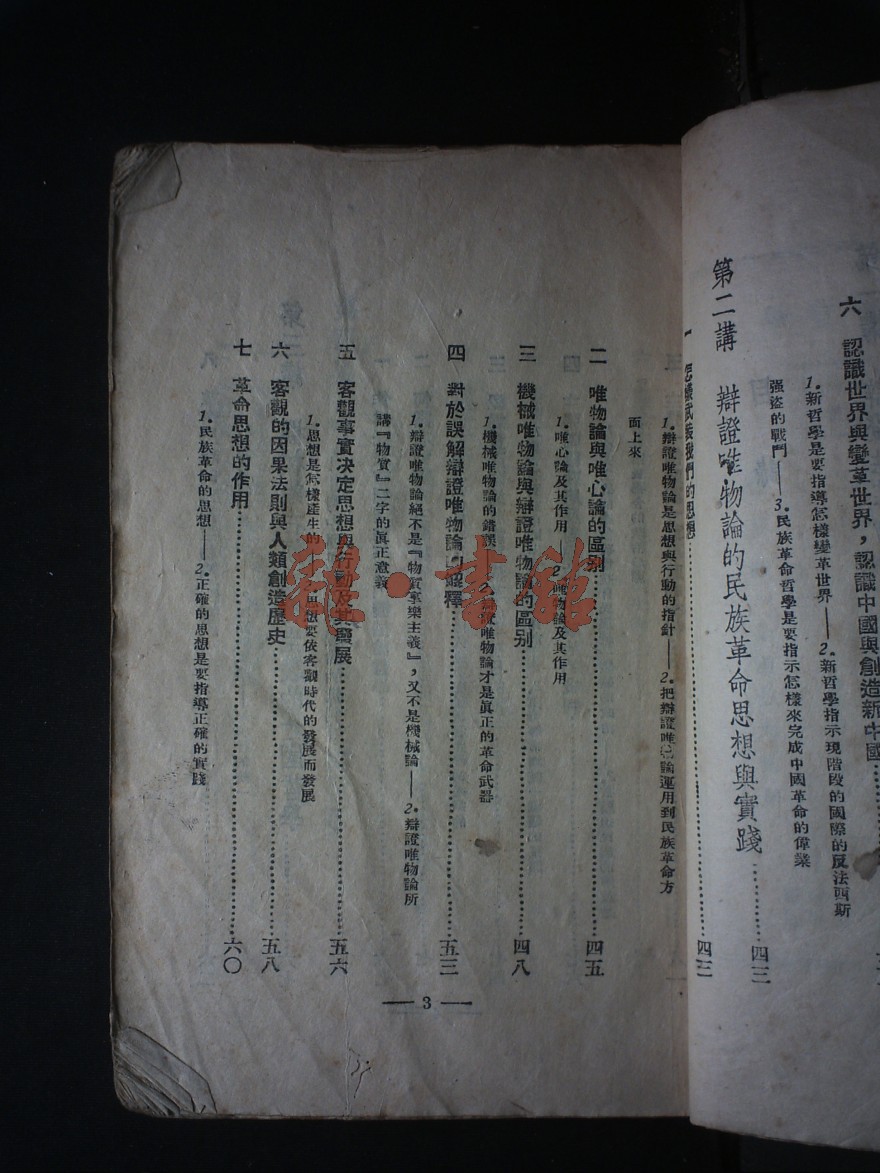 六 認識世界與變革世界,認識中國與創造新中國
1.新哲學是要指導怎樣變革世界——2.新哲學指示現階段的國際的反法西斯
强盜的戰鬥——3.民族革命哲學是要指示怎樣來完成中國革命的偉業
第二講 辯證唯物論的民族革命思想與實踐…………四二
一 怎樣武裝我們的思想…………四三
1.辯證唯物論是思想與行動的指針——2.把辯證唯物論運用到民族革命方
面上來
二 唯物論與唯心論的區别…………四五
1.唯心論及其作用——2.唯物論及其作用
三 機械唯物論與辯證唯物論的區别…………四八
1.機械唯物論的錯誤——2.辯證唯物論才是眞正的革命武器
四 對於誤解辯證唯物論的解釋…………五三
1.辯證唯物論絕不是『物質享樂主義』,又不是機械論——2.辯證唯物論所
講『物質』二字的眞正意義
五 客觀事實決定思想與行動及其發展…………五六
1.思想是怎樣產生的——2.思想要依客觀時代的發展而發展
六 客觀的因果法則與人類創造歷史…………五八
七 革命思想的作用…………六〇
1.民族革命的思想——2.正確的思想是要指導正確的實踐
— 3 —
龍·書館